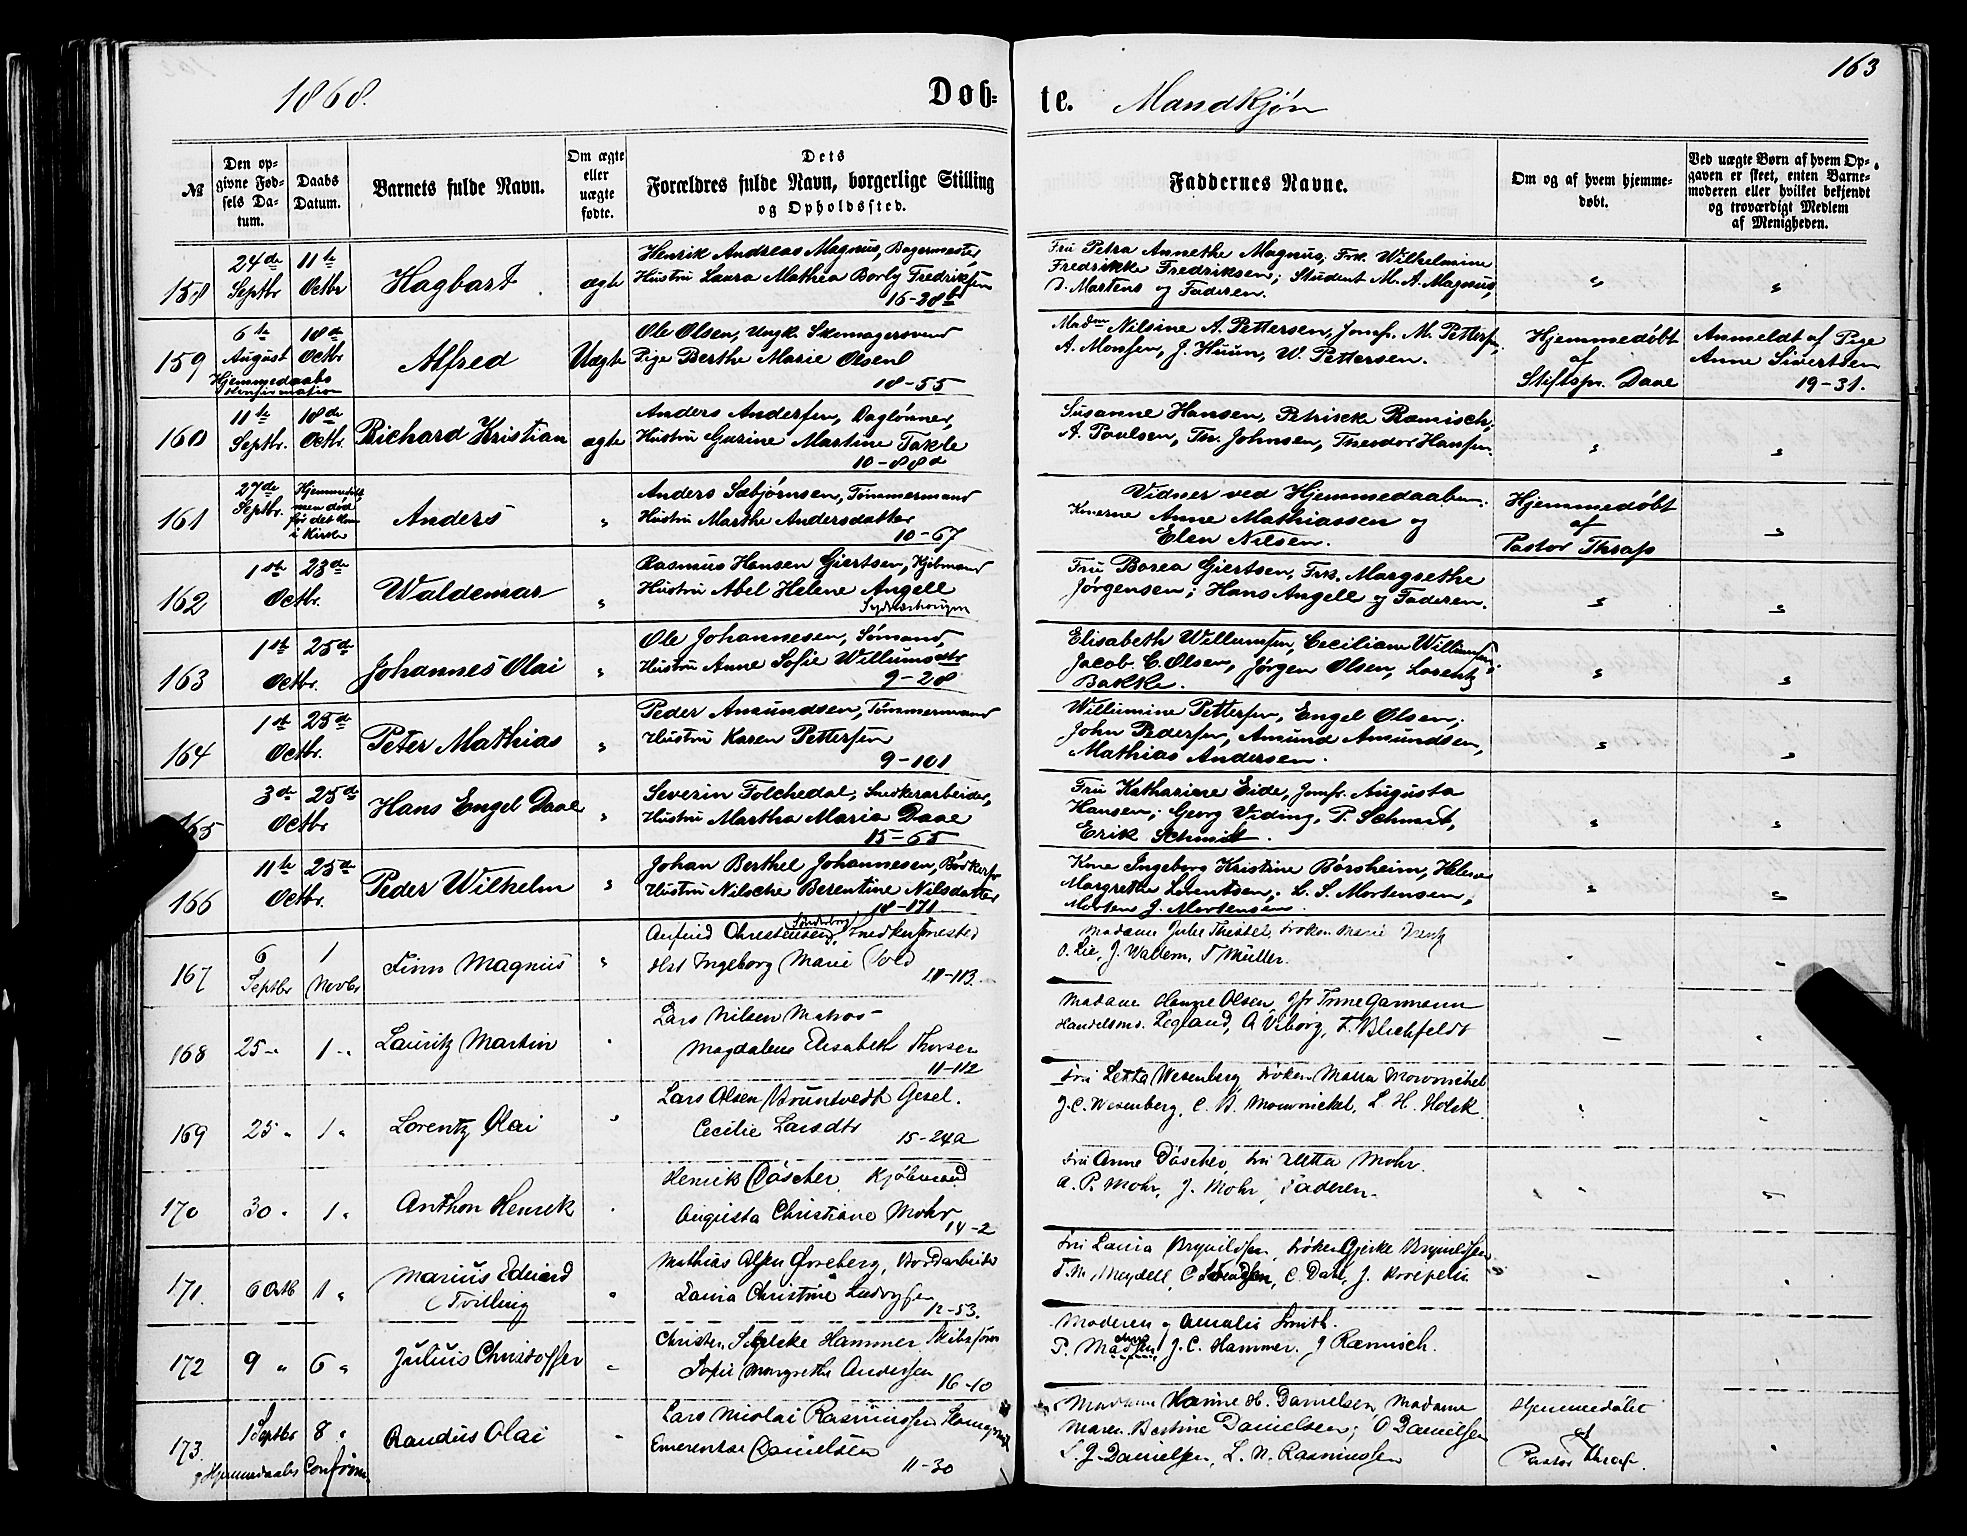 163
1868.
Døb-
te. Mandkjøn
№
Den op-
givne Fød-
sels Da-
tum.
Daabs
Datum.
Barnets fulde Navn.
Om ægte
eller
uægte
fødte.
Dets
Forældres fulde Navn, borgerlige Stilling
og Opholdssted.
Faddernes Navne.
Om og af hvem hjemme-
døbt.
Ved uægte Børn af hvem Op-
gaven er skeet, enten Barne-
moderen eller hvilket bekjendt
og troværdigt Medlem
af Menigheden.
158
24de
Septbr
11te
Octbr
Hagbart
ægte
Henrik Andreas Magnus, Bagermester,
Hustru Laura Mathea Borly Fredriksen
16-28b
Fru Petra Annethe Magnus, Frk. Wilhelmine
Fredrikke Fredriksen; Student M. A. Magnus,
D. Martens og Faderen.
159
6te
August
18de
Octbr
Hjemmedaabs
Confirmation
Alfred
Uægte
Ole Olsen, Ungk. Skomagersvend
Pige Berthe Marie Olsen
18-55
Madm Nilsine A. Pettersen, Jomfr. M. Pettersen,
A. Monsen, J. Huun, W. Pettersen.
Hjemmedøbt
af
Stiftspr. Daae
Anmeldt af Pige
Anne Sivertsen
19-31.
160
11te
Septbr.
18de
Octbr.
Richard Kristian
ægte
Anders Andersen, Daglønner,
Hustru Gurine Martine Takle
10-88d
Susanne Hansen, Petrikke Ræmisch,
A. Paulsen, Th. Johnsen, Theodor Hansen.
161
27de
Septbr.
Hjemmedøbt
men død
før det kom
i Kirke
Anders
Anders Sæbjørnsen, Tømmermand
Hustru Marthe Andersdatter
10-67
Vidner ved Hjemmedaaben:
Konerne Anne Mathiassen og
Elen Nilsen.
Hjemmedøbt
af
Pastor Thrap
162
1ste
23de
Octbr.
Waldemar
Rasmus Hansen Giertsen, Kjøbmand
Hustru Abel Helene Angell
Fru Borea Giertsen, Frk. Margrethe
Jørgensen; Hans Angell og Faderen.
163
1ste
25de
Octbr.
Johannes Olai
Ole Johannesen, Sømand,
Hustru Anne Sofie Willumsdtr
9-28
Elisabeth Willumsen, Cecilia Willumsen,
Jacob C. Olsen, Jørgen Olsen, Lorentz
Bakke.
164
1ste
25de
Octbr.
Peter Mathias
Peder Amundsen, Tømmermand
Hustru Karen Pettersen
9-101
Willumine Pettersen, Engel Olsen,
John Pedersen, Amund Amundsen,
Mathias Andersen.
165
3de
25de
Octbr
Hans Engel Daae
Severin Folchedal, Snedkerarbeider,
Hustru Martha Maria Daae
15-65
Fru Katharine Eide, Jomfr. Augusta
Hansen; Georg Viding, P. Schmidt,
Erik Schmidt.
166
11te
25de
Octbr.
Peder Wilhelm
Johan Berthel Johannesen, Bødkersv
Hustru Nilsche Berentine Nilsdatter
18-171
Kone Ingeborg Kristine Børsheim, Helene
Margrethe Lorentsen, L. S. Mortensen,
Morten J. Mortensen
167
6
Septbr
1
Novbr
Finn Magnus
Anfind Christensen Sønderborg, Snedkermester
Hst Ingeborg Marie Told
18-113.
Madame Julie Thistel, Frøken Marie
O. Lie, J. Wallem, T Müller.
168
25 "
1 "
Lauritz Martin
Lars Nilsen Matros
Magdalene Elisabeth Thorsen
11-112
Madame Hanne Olsen, Jfr Trine Garmann
Handelsmd. Legland, A Viborg, F. Blichfeldt
169
25 "
1 "
Lorentz Olai
Lars Olsen Bruntvedt Gesel.
Cecilie Larsdtr
15-24a
Fru Letta Wesenberg, Frøken Maria Mowinckel
J. C. Wesenberg, C. B. Mowinckel, L. H. Holck
170
30 "
1 "
Anthon Henrik
Henrik Döscher, Kjøbmand
Augusta Christiane Mohr
14-2
Fru Anne Döscher, Fru Jetta Mohr.
A. P. Mohr, J. Mohr, Faderen.
171.
6 Octb
1 "
Marius Eduard
(Tvilling
Mathias Olsen Øvreberg, Bordarbeider
Laura Christine Ludvigsen
12-53.
Fru Laura Brynildsen, Frøken Gjerke Brynildsen
T. M. Meydell, C Svendsen, C. Dahl, J. Kroepelin
172
9 "
6 "
Julius Christoffer
Christen Schelcke Hammer, Skibsfører
Sofie Margrethe Andersen
16-10
Moderen og Amalie Smith.
P. Madsen, J. C. Hammer, J Ræmisch.
173.
1 Septbr
8 "
Hjemmedaabs Confirm.
Randus Olai
Lars Nicolai Rasmussen
Emerentse Danielsen
11-30
Madame Hanne H. Danielsen, Madame
Maren Bertine Danielsen; O Danielsen
L. J. Danielsen, L. N. Rasmussen
Hjemmedøbt
af
Pastor Thrap.